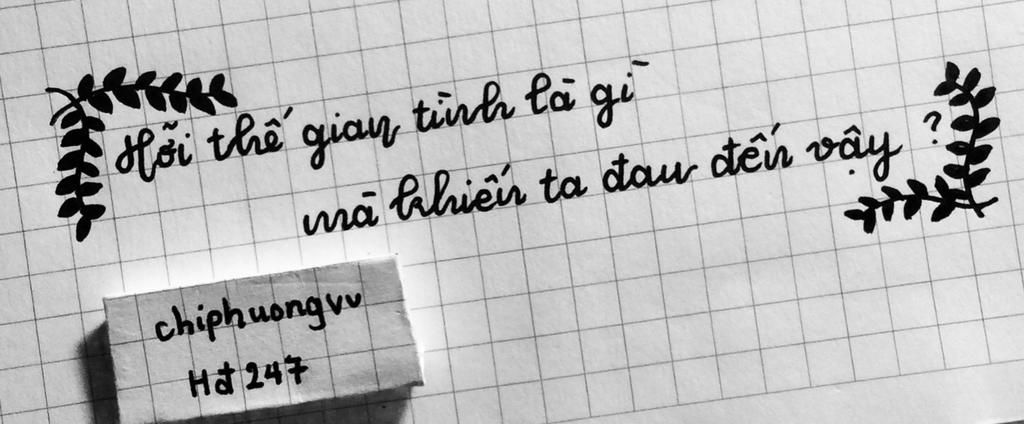 Hỏi thế gian tình là gì
mà khiến ta đau đến vậy ?
chiphuongvu
Hđ 247